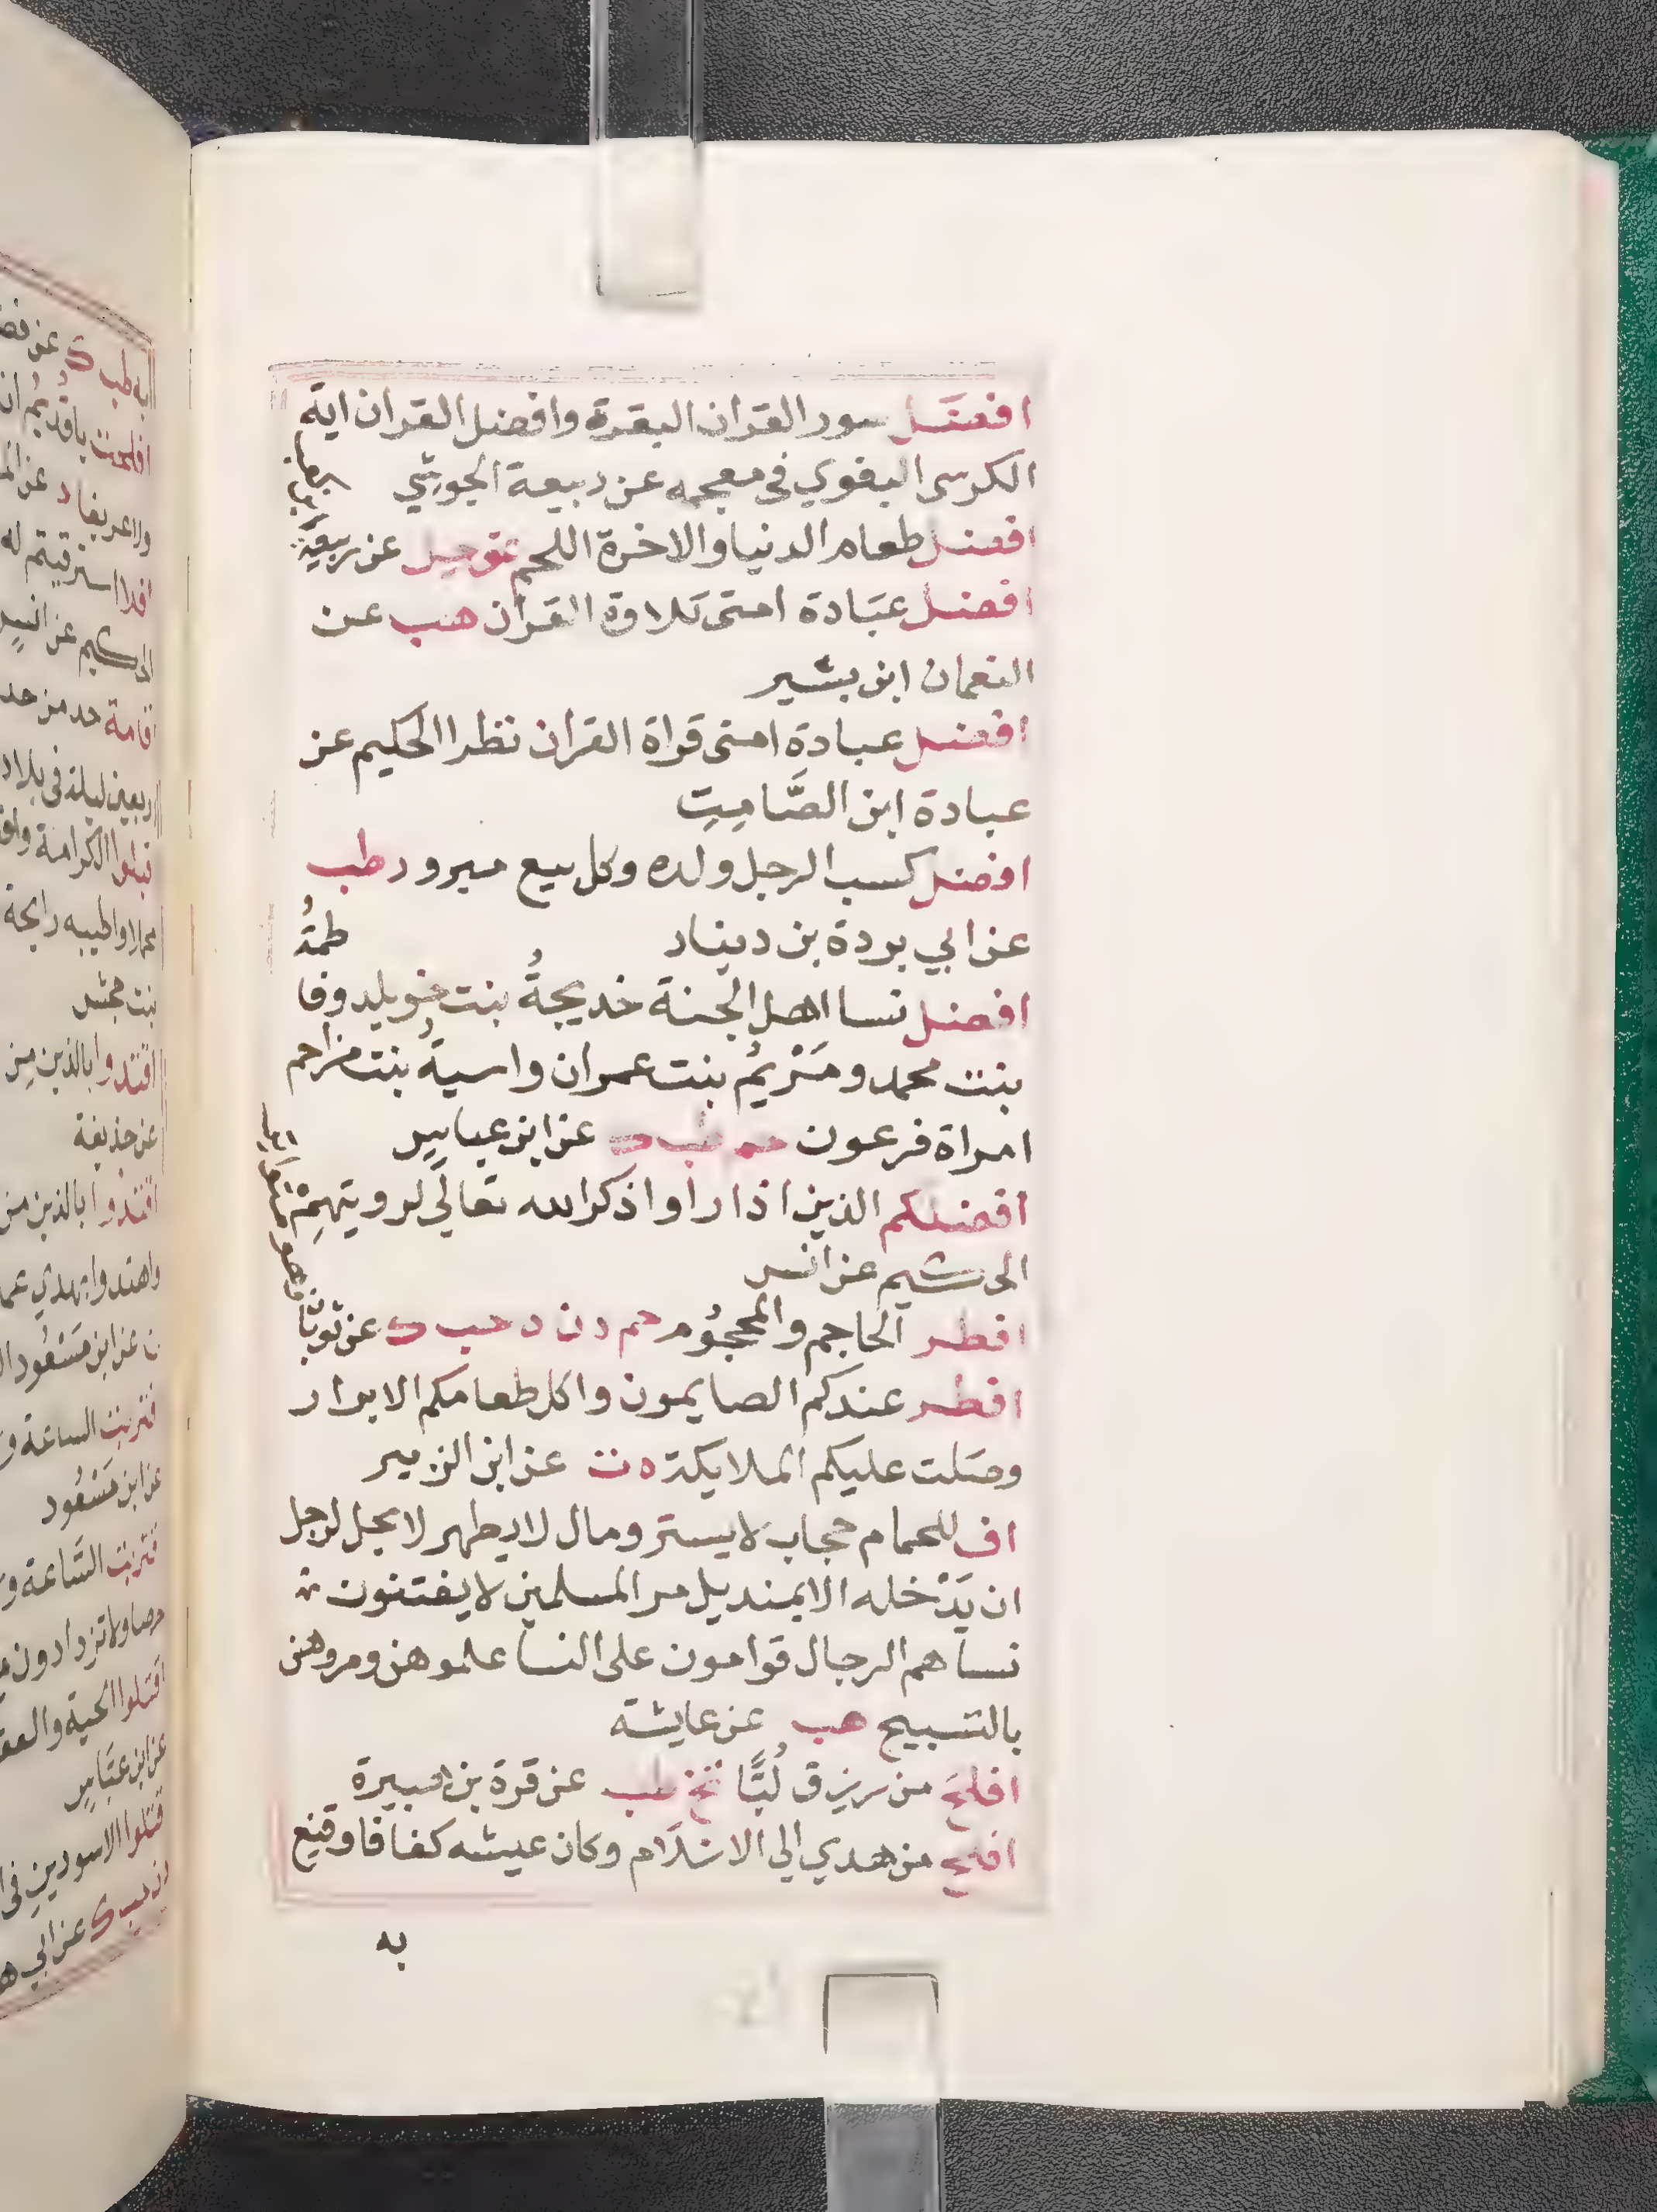 افضل سور القران البقرة وافضل القران اية
الكرسى البغوي فى معجمه عن ربيعة الجرشي
افضل طعام الدنيا والاخرة اللحم عق حل عن ربيعة
افضل عبادة امتى تلاوة القران هب عن
النعمان ابن بشير
افضل عبادة امتى قراة القران نظرا الحكيم عن
عبادة ابن الصَّامِتِ
افضل كسب الرجل ولده وكل بيع مبرور طب
عن ابي بردة بن دينار
طمةُ
افضل نسا اهل الجنة خديجةُ بنت خويلد وفا
بنت محمد ومَرْيمُ بنت عمران واسيةُ بنت مزاحم
امراة فرعون حم طب ك عن ابن عباسٍ
افضلكم الذين اذا راوا ذكر الله تعالى لرويتهِمْ
الحكيم عن انس
افطر الحاجم والمحجُوم حم د ن ه حب ك عن ثوبان
افطر عندكم الصايمون واكل طعامكم الابرار
وصَلت عليكم الملايكة ه ت عن ابن الزبير
اف للحمام حجاب لا يستر ومال لا يطهر لا يحل لرجل
ان يَدْخله الا بمنديل مر المسلمين لا يفتنون
نساهم الرجال قوامون على النسا علموهن ومروهن
بالتسبيح هب عن عايشة
افلحَ من رزق لُبًّا تخ طب عن قرة بن هبيرة
افلح من هدي الي الاسْلَام وكان عيشه كفافا وقنع
به